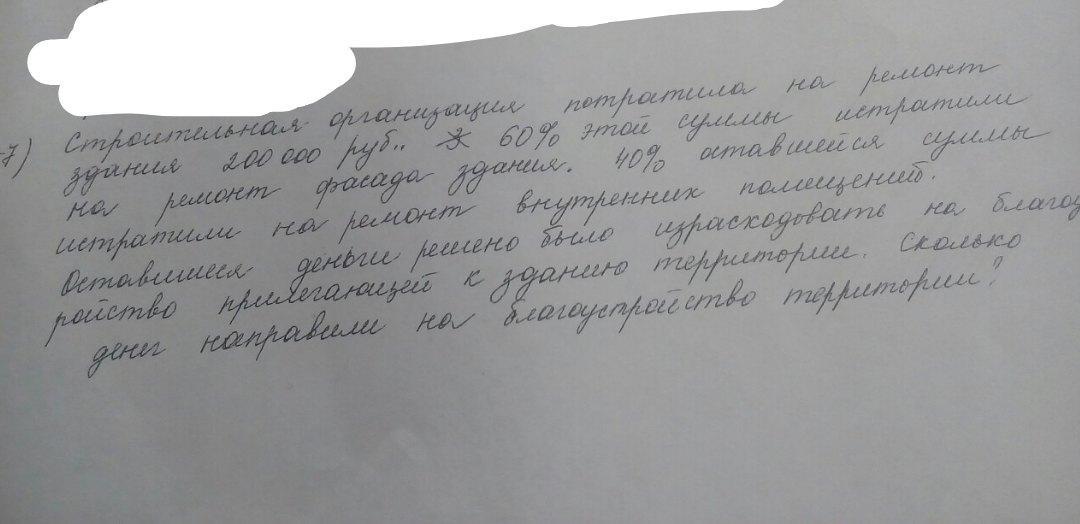 7) Строительная организация потратила на ремонт
здания 200 000 руб.. 60% этой суммы истратили
на ремонт фасада здания. 40% оставшейся суммы
истратили на ремонт внутренних помещений.
Оставшиеся деньги решено было израсходовать на благоу
ройство прилегающей к зданию территории. Сколько
денег направили на благоустройство территории?